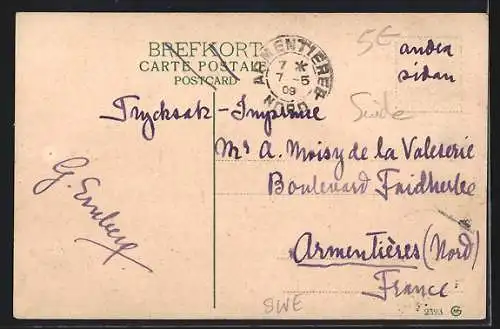 BREFKORT
CARTE POSTALE
POSTCARD
ARMENTIERES
7 *
7 -5
09
NORD
5€
andra
sidan
Suède
Trycksak - Imprimé
Mr A. Moisy de la Valeserie
Boulevard Faidherbe
Armentières (Nord)
France
SWE
2393